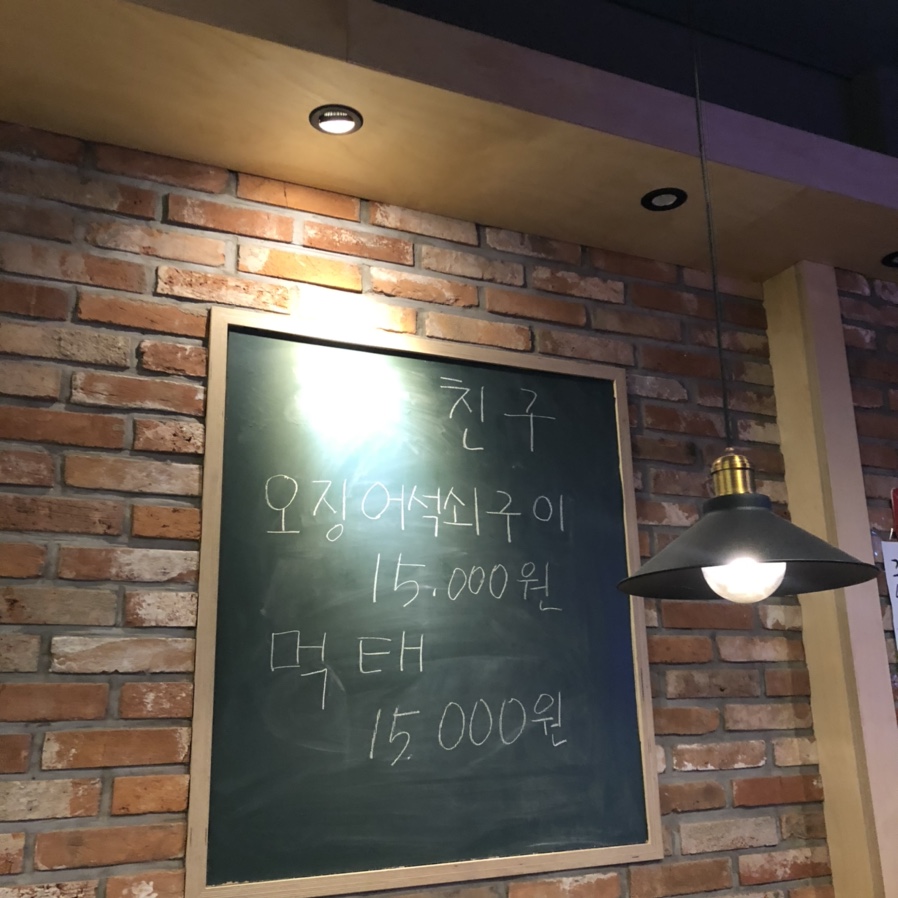 친구
오징어석쇠구이
15.000원
먹태
15.000원